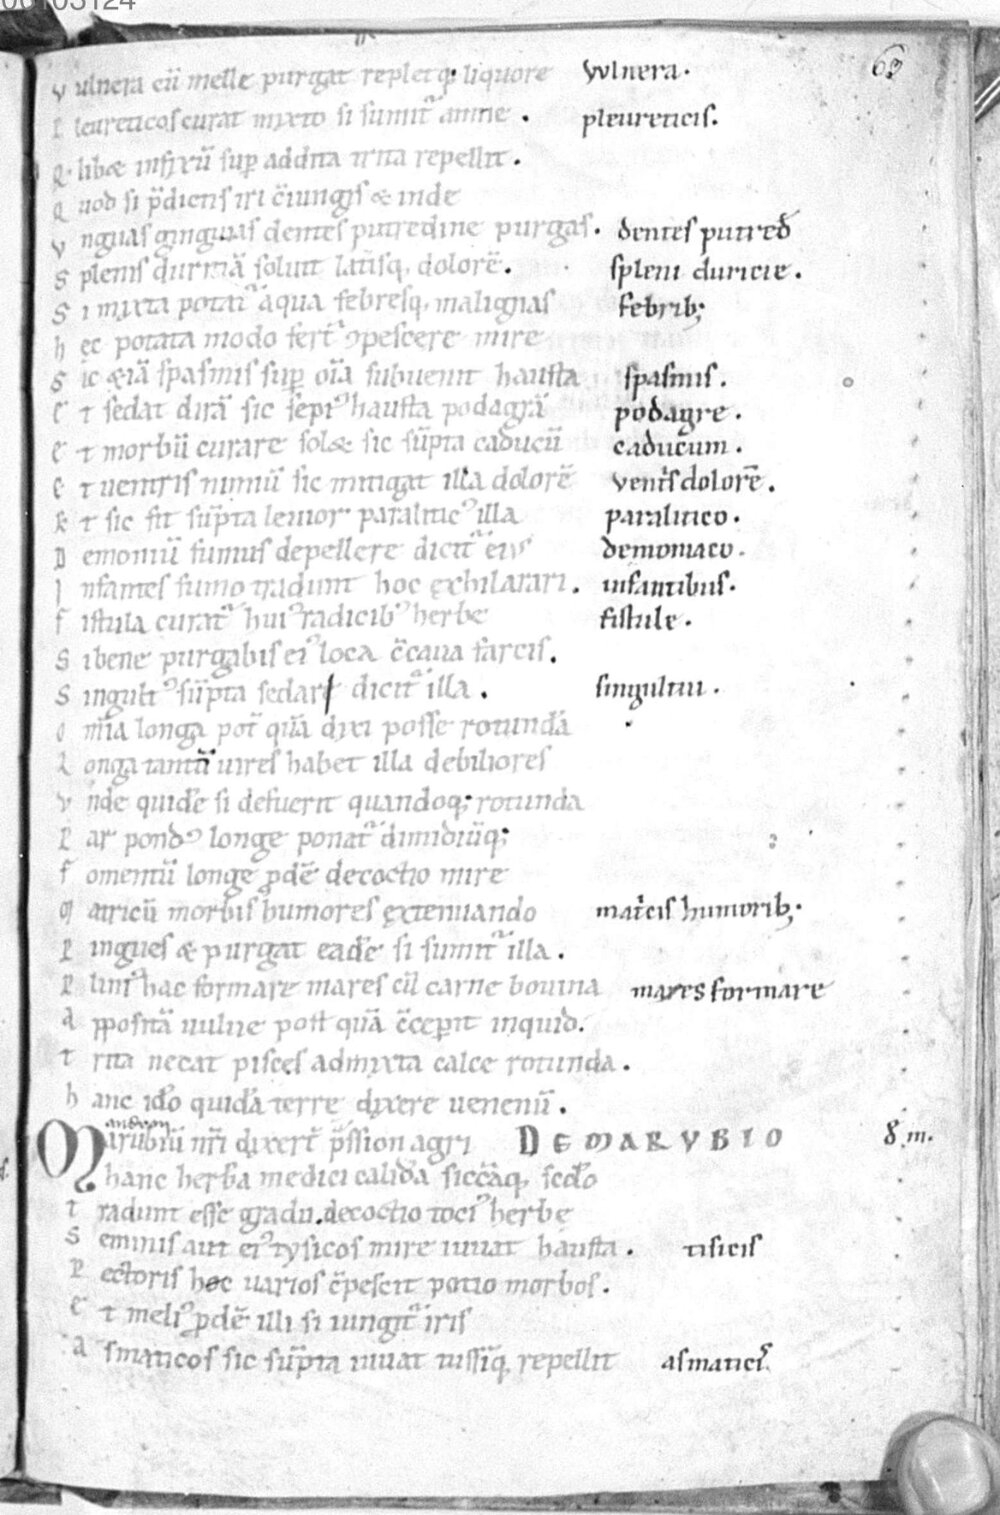 63
vulnera cū melle purgat repletq; liquore vvlnera.
pleureticos curat mixto si sumit᷑ amne. pleureticis.
Quelibæ infixū sup addita trita repellit.
Quod si p̄dictis iri c̄iungis & inde
vnguas gingiuas dentes putredine purgas. dentes putred̄
splenis duritiā soluit lat̄isq, dolorē. spleni duricie.
Si mixta potat᷑ aqua febresq, malignas febrib;
hec potata modo fert᷑ ꝯpescere mire
Sic &iā spasmis sup oīa subuenit hausta spasmis.
Et sedat dirā sic sepiꝰ hausta podagrā podagre.
Et morbū curare sol& sic sūpta caducū caducum.
Et uentris nimiū sic mitigat illa dolorē vent̄is dolorē.
Et sic fit sūpta leuior paraliticꝰ illa paralitico.
Demoniū fumus depellere dicit᷑ eiꝰ demoniaco.
Infantes fumo tradunt hoc exhilarari. infantibus.
fistula curat᷑ huiꝰ radicibꝰ herbe fistule.
Si bene purgabis eiꝰ loca c̄caua farcis.
Singultꝰ sūpta sedare dicit᷑ illa. singultui.
Om̄ia longa pot̄ quā dixi posse rotundā
Longa tantū uires habet illa debiliores
vnde quidē si defuerit quandoq; rotunda
Par pondꝰ longe ponat᷑ dimidiūq;
fomentū longe ꝓdē decoctio mire
Matricū morbis humores extenuando mat̄cis humorib;
Pingues & purgat eadē si sumit᷑ illa.
Pliniꝰ hac formare mares cū carne bouina mares formare
Apposita uulue post quā c̄cepit inquid.
trita necat pisces admixta calce rotunda.
hanc ido quidā terre dixere uenenū.
Marubiū nr̄i dixert̄ p̄ssion agri DE MARVBIO
hanc herba medici calida siccāq, scdo
tradunt esse gradu. decoctio tociꝰ herbe
Seminis aut eiꝰ tysicos mire iuuat hausta. tisicis
Pectoris hoc uarios c̄pescit potio morbos.
Et meliꝰ ꝓdē illi si iungit᷑ iris
asmaticos sic sūpta iuuat tussiq, repellit asmaticis